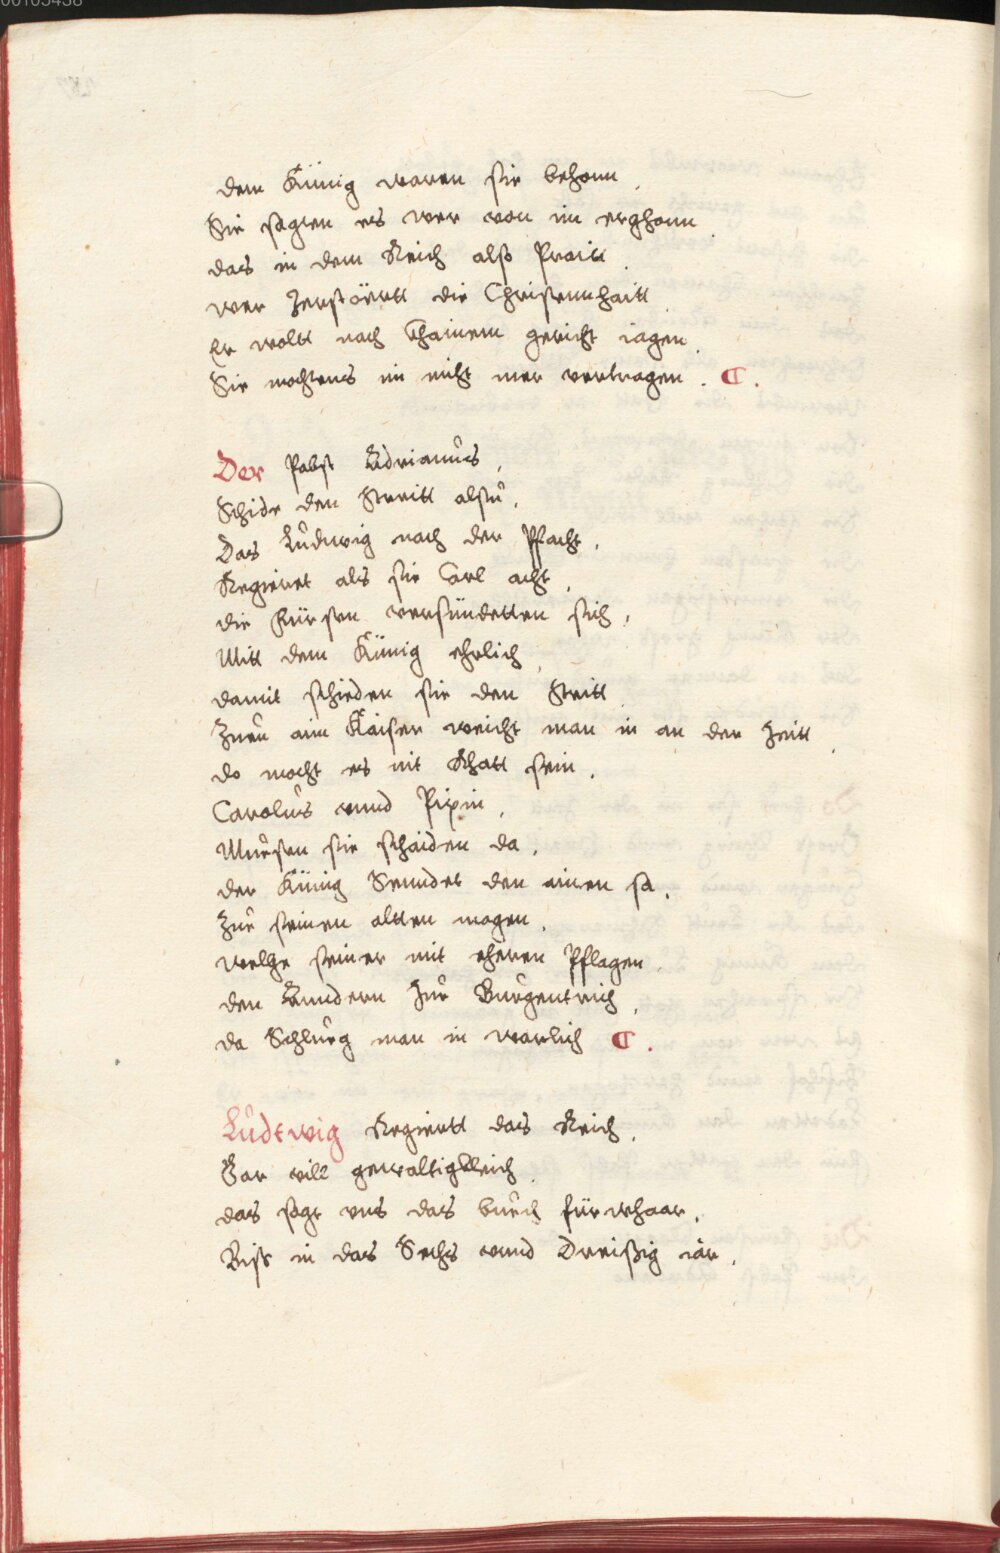 dem Künig waren sie behonn.
Sie sagten es wer von im erghonn.
das in dem Reich alß Prait
wer Zerstöertt die Christennhaitt
Er wolt nach Khainem gericht iagen.
Sie mochtens im nicht mer vertragen. ¶.
Der Pabst Adrianus,
Schide den Streitt alsus,
Das Ludwig nach der Pfacht,
Regieret als sie Carl acht,
die Fürsten versündetten sich,
Mitt dem Künig ehrlich,
damit schieden sie den Streitt
Zueu aim Kaiser weicht man in an der Zeitt.
do mocht es nit Rhatt sein.
Carolus vnnd Pipin,
Muesten sie schaiden da.
der Künig Senndet den ainen sa.
Zue seinen altten magen.
welche seiner mit eheren Pflagen.
den Anndern Zue Burgentrich,
da Schlueg man in warlich ¶.
Ludtwig Regiertt das Reich.
Gar vill gewaltigkleich
das sagt vns das buech fürwhaar.
Biß in das Sechs vnnd Dreißig iar.